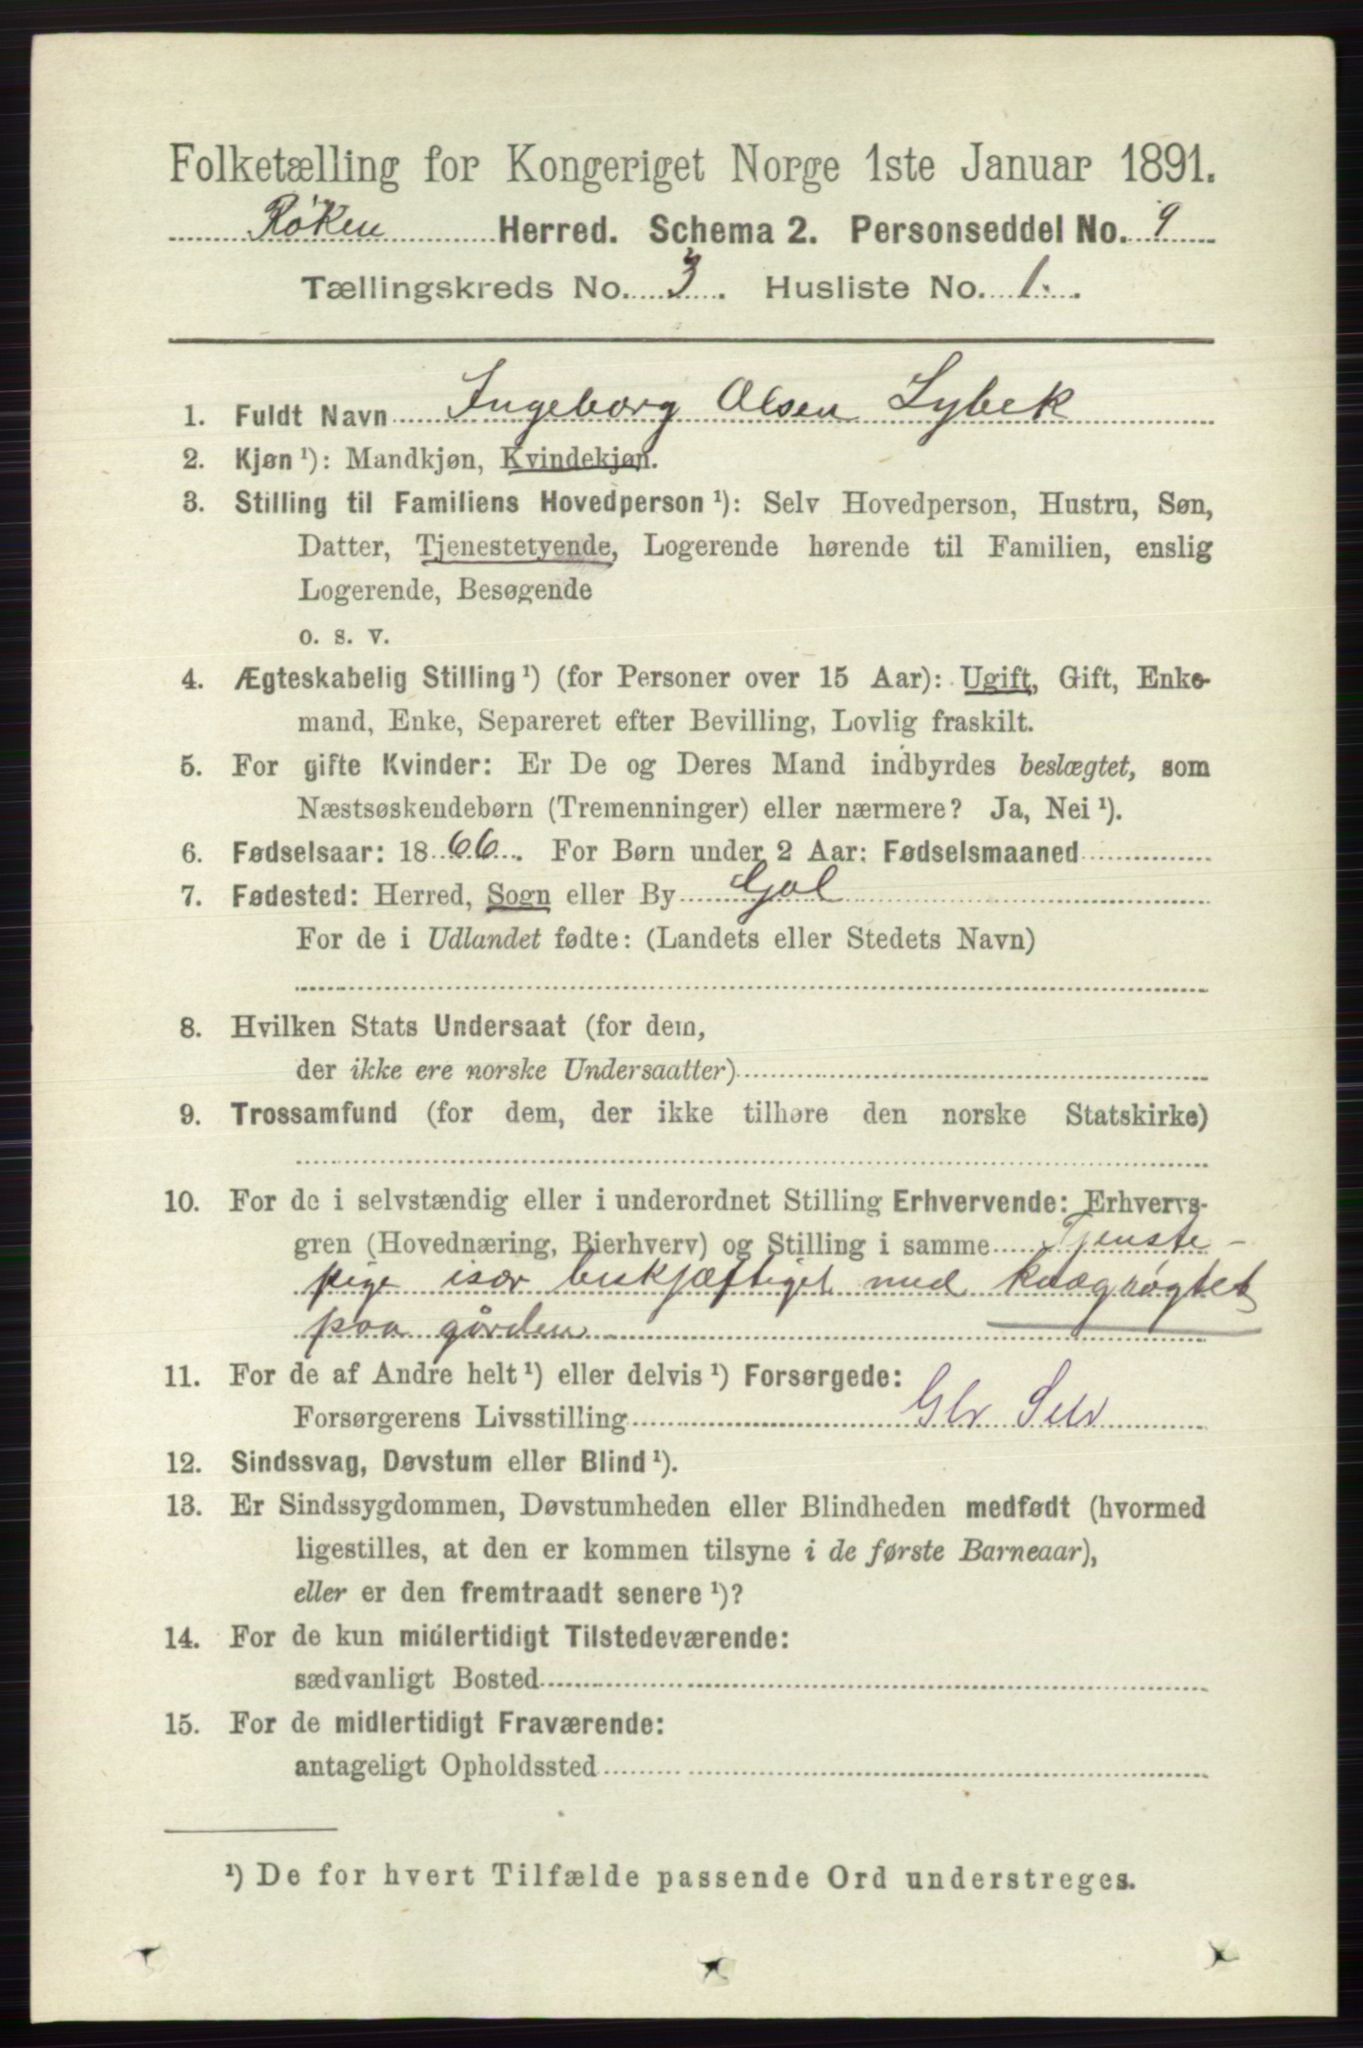 Folketælling for Kongeriget Norge 1ste Januar 1891.
Røken Herred. Schema 2. Personseddel No. 9
Tællingskreds No. 3. Husliste No. 1.
1. Fuldt Navn Ingeborg Olsen Lybek
2. Kjøn ¹): Mandkjøn, Kvindekjøn.
3. Stilling til Familiens Hovedperson ¹): Selv Hovedperson, Hustru, Søn,
Datter, Tjenestetyende, Logerende hørende til Familien, enslig
Logerende, Besøgende
o. s. v.
4. Ægteskabelig Stilling ¹) (for Personer over 15 Aar): Ugift, Gift, Enke-
mand, Enke, Separeret efter Bevilling, Lovlig fraskilt.
5. For gifte Kvinder: Er De og Deres Mand indbyrdes beslægtet, som
Næstsøskendebørn (Tremenninger) eller nærmere? Ja, Nei ¹).
6. Fødselsaar: 1866. For Børn under 2 Aar: Fødselsmaaned
7. Fødested: Herred, Sogn eller By Gol
For de i Udlandet fødte: (Landets eller Stedets Navn)
8. Hvilken Stats Undersaat (for dem,
der ikke ere norske Undersaatter)
9. Trossamfund (for dem, der ikke tilhøre den norske Statskirke)
10. For de i selvstændig eller i underordnet Stilling Erhvervende: Erhvervs-
gren (Hovednæring, Bierhverv) og Stilling i samme Tjenste-
pige især beskjæftiget med kvægrøgtet
paa gården
11. For de af Andre helt ¹) eller delvis ¹) Forsørgede:
Forsørgerens Livsstilling Gbr Selv
12. Sindssvag, Døvstum eller Blind ¹).
13. Er Sindssygdommen, Døvstumheden eller Blindheden medfødt (hvormed
ligestilles, at den er kommen tilsyne i de første Barneaar),
eller er den fremtraadt senere ¹)?
14. For de kun midlertidigt Tilstedeværende:
sædvanligt Bosted
15. For de midlertidigt Fraværende:
antageligt Opholdssted
¹) De for hvert Tilfælde passende Ord understreges.